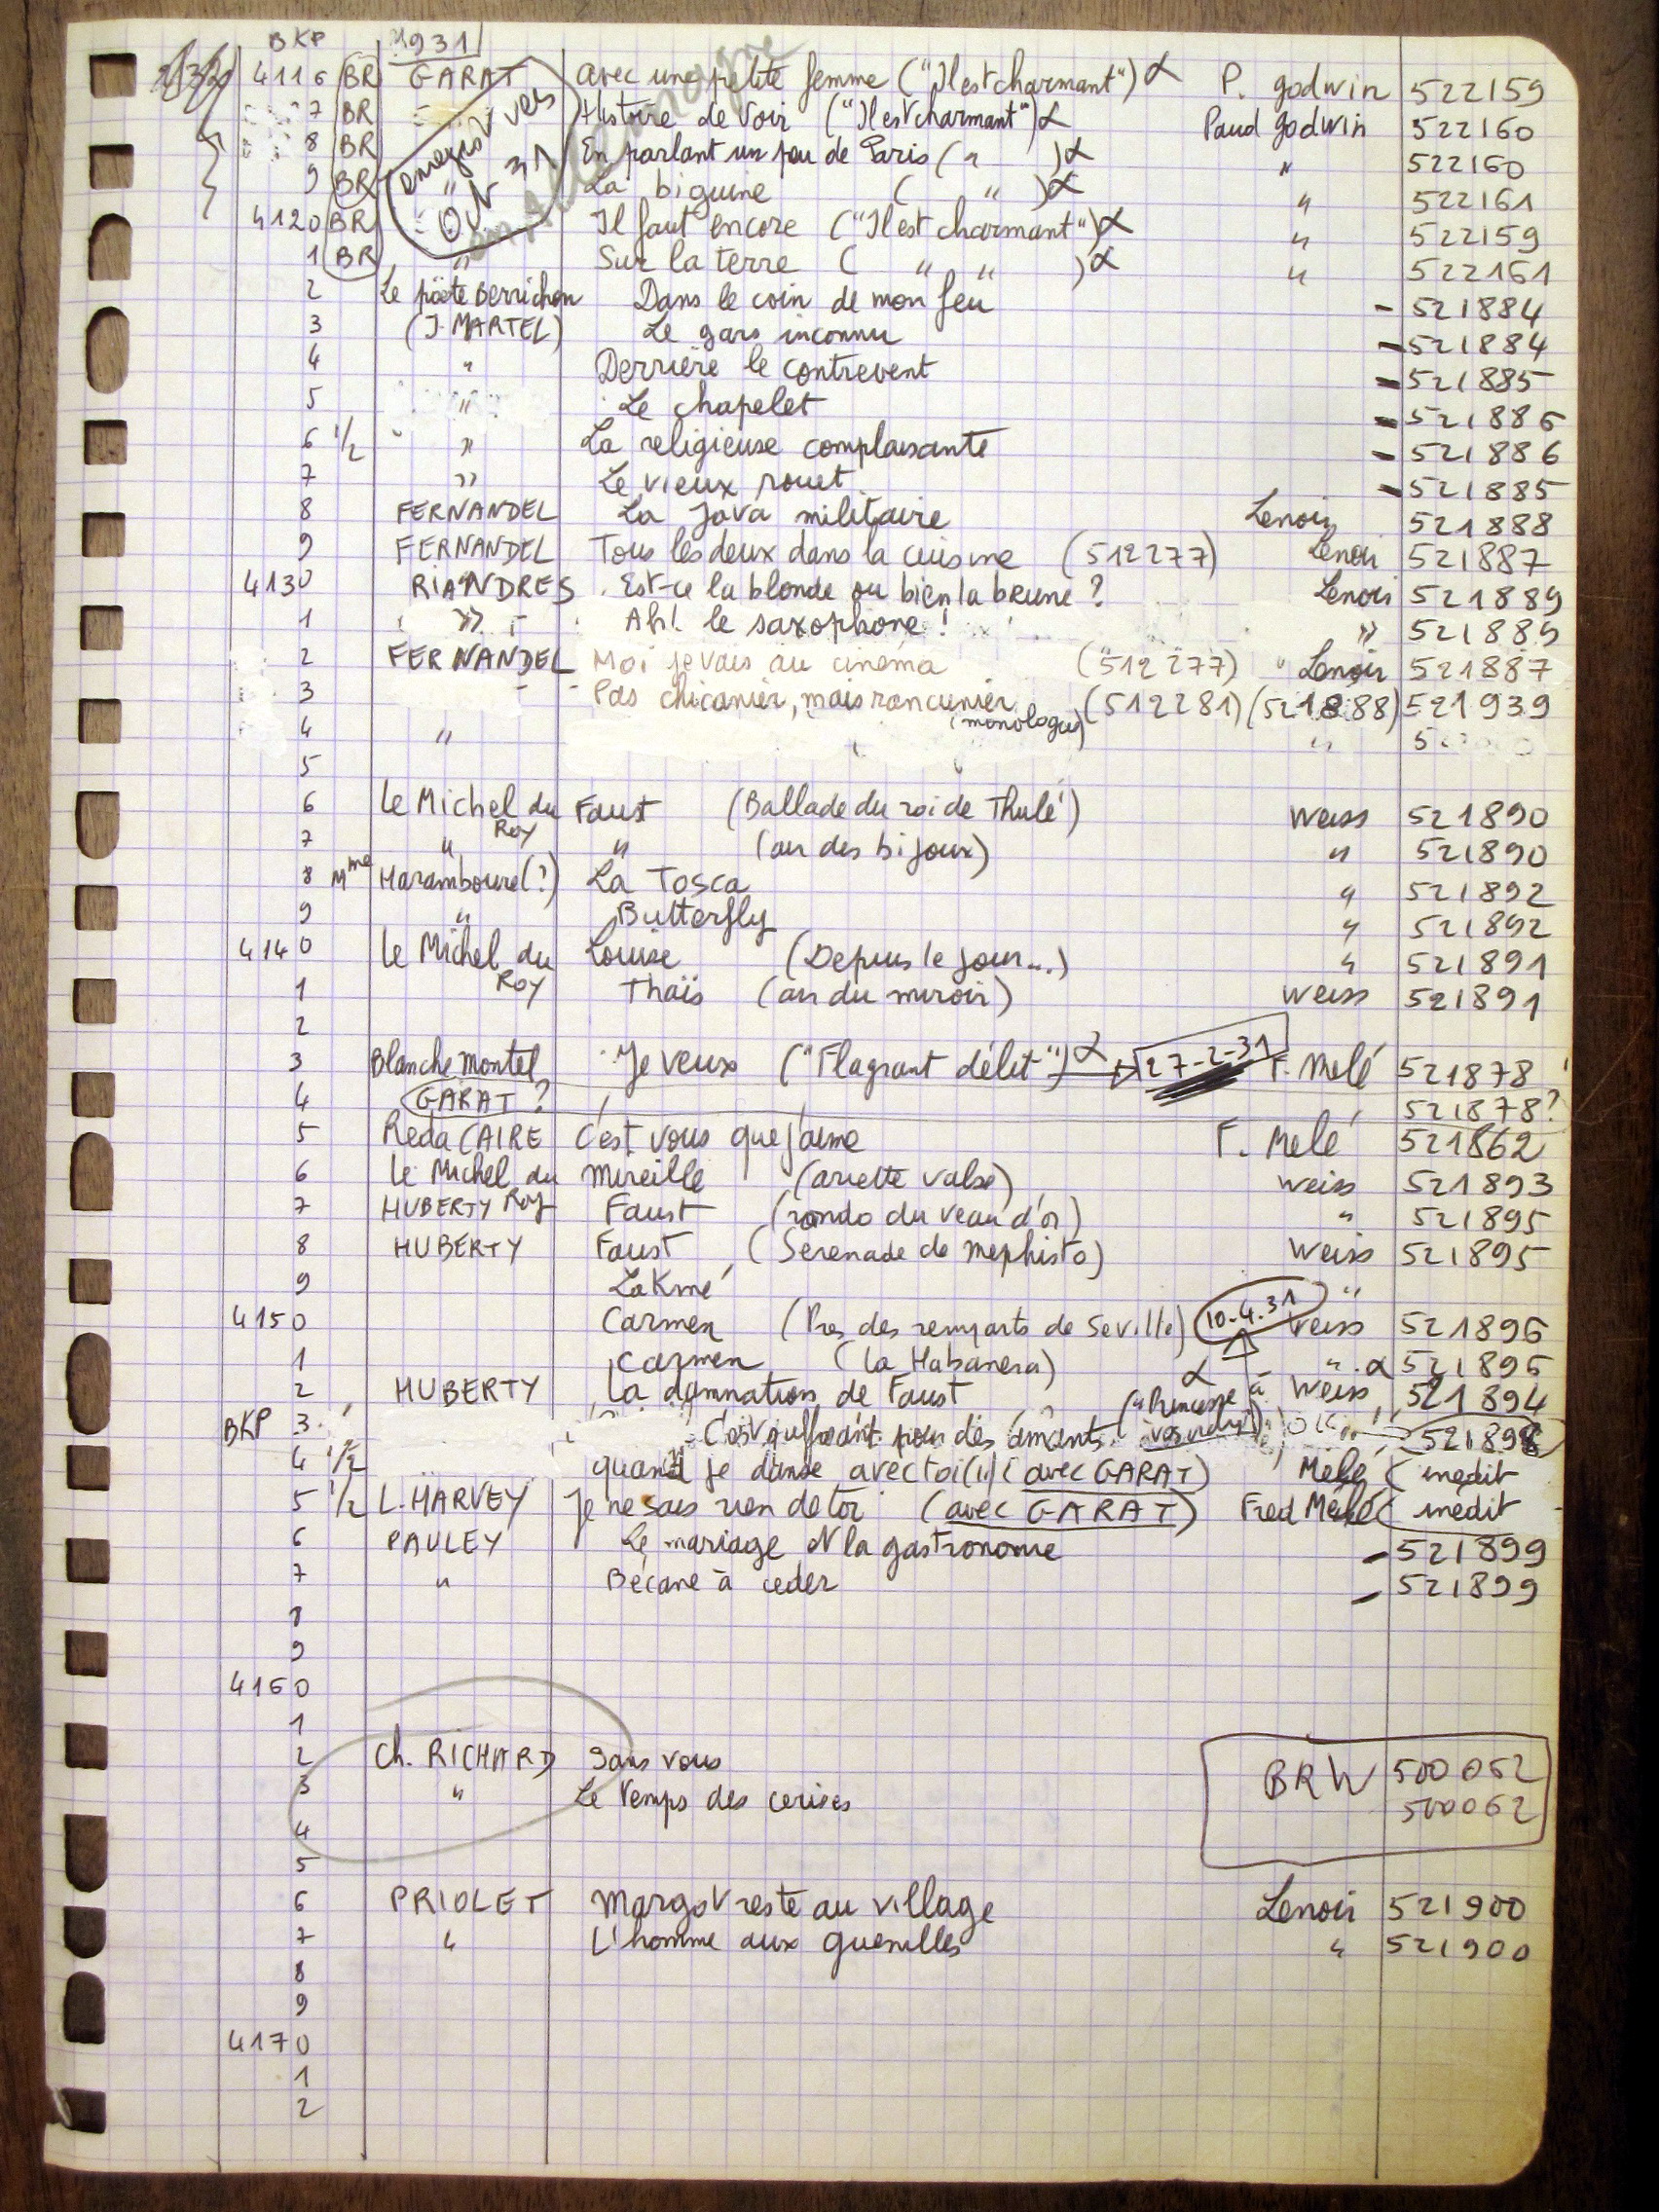 BKP 1931
4116 BR GARAT avec une petite femme ("Il est charmant") α P. Godwin 522159
7 BR Histoire de voir ("Il est charmant") α Paud Godwin 522160
8 BR En parlant un peu de Paris ( " ) α " 522160
9 BR " La biguine ( " ) α " 522161
4120 BR Il faut encore ("Il est charmant") α " 522159
1 BR " Sur la terre ( " " ) α " 522161
enregist vers
Oct 31
en Allemagne
2 Le poëte Berrichon Dans le coin de mon feu - 521884
3 (J. MARTEL) Le gars inconnu - 521884
4 " Derrière le contrevent - 521885
5 " Le chapelet - 521886
6 1/2 " La religieuse complaisante - 521886
7 " Le vieux rouet - 521885
8 FERNANDEL La Java militaire Lenoir 521888
9 FERNANDEL Tous les deux dans la cuisine (512277) Lenoir 521887
4130 RIANDRES Est-ce la blonde ou bien la brune ? Lenoir 521889
1 " Ah! le saxophone ! " 521889
2 FERNANDEL Moi je vais au cinéma (512277) Lenoir 521887
3 - - Pas chicanier, mais rancunier (512281) (521888) 521939
(monologue)
4 " "
5
6 Le Michel du Roy Faust (Ballade du roi de Thulé) Weiss 521890
7 " " (air des bijoux) " 521890
8 Mme Maramboure (?) La Tosca " 521892
9 " Butterfly " 521892
4140 Le Michel du Roy Louise (Depuis le jour...) " 521891
1 Thaïs (air du miroir) Weiss 521891
2
3 Blanche Montel Je veux ("Flagrant délit") α → 27-2-31 F. Melé 521878
4 GARAT ? 521878?
5 Reda CAIRE C'est vous que j'aime F. Melé 521862
6 Le Michel du Roy Mireille (ariette valse) Weiss 521893
7 HUBERTY Faust (rondo du veau d'or) " 521895
8 HUBERTY Faust (Serenade de Mephisto) Weiss 521895
9 Lakmé "
4150 Carmen (Pres des remparts de Seville) 10-4-31 Weiss 521896
1 Carmen (la Habanera) α " α 521896
2 HUBERTY La damnation de Faust Weiss 521894
BKP 3 C'est suffisant pour des amants ("Princesse à vos ordres") 521898
4 1/2 quand je danse avec toi (avec GARAT) Melé (inedit
5 1/2 L. HARVEY Je ne sais rien de toi (avec GARAT) Fred Melé (inedit
6 PAULEY Le mariage et la gastronomie - 521899
7 " Bécane à ceder - 521899
8
9
4160
1
2 Ch. RICHARD Sans vous BRW 500062
3 " Le temps des cerises 500062
4
5
6 PRIOLET Margot reste au village Lenoir 521900
7 " L'homme aux guenilles " 521900
8
9
4170
1
2